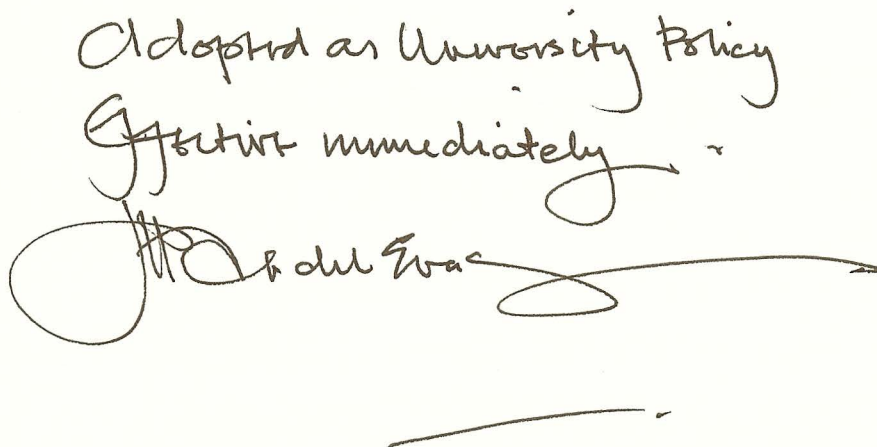 Adopted as University Policy
Effective immediately.